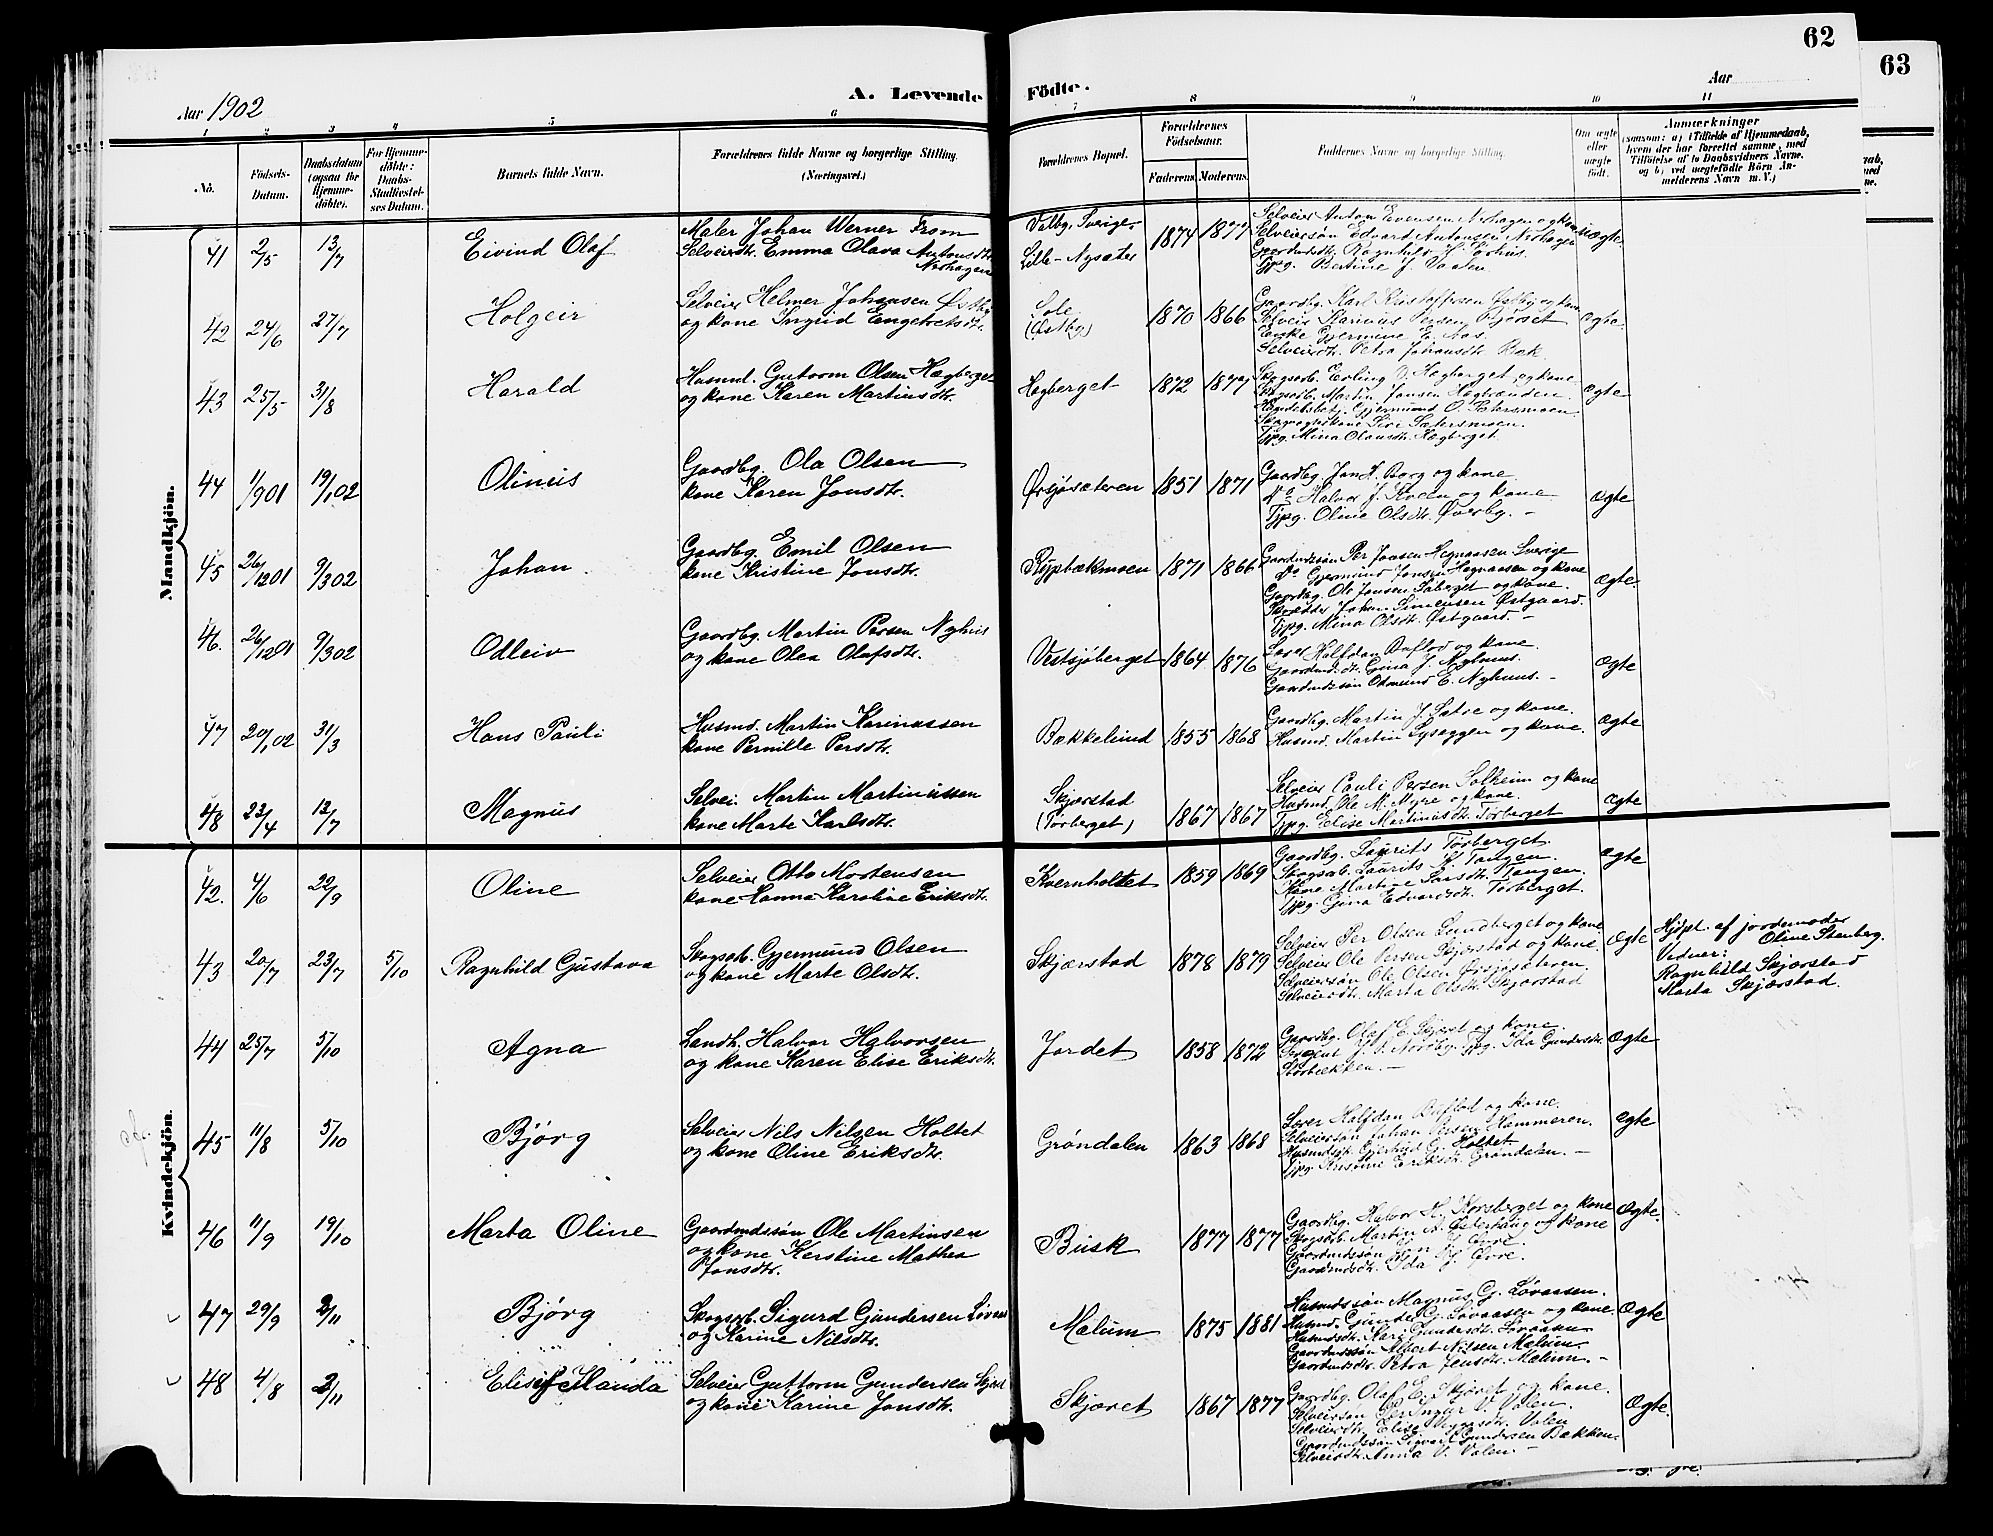 62
63
Aar 1902
A. Levende Födte.
Aar
1 2 3 4 5 6 7 8 9 10 11
No.
Födsels-Datum.
Daabsdatum (ogsaa for Hjemme-döbte).
For Hjemme-döbte: Daabs-Stadfæstel-ses Datum.
Barnets fulde Navn.
Forældrenes fulde Navne og borgerlige Stilling. (Næringsvei.)
Forældrenes Bopæl.
Forældrenes Födselsaar.
Faderens. Moderens.
Faddernes Navne og borgerlige Stilling.
Om ægte eller uægte født.
Anmærkninger
(saasom: a) i Tilfælde af Hjemmedaab, hvem der har forrettet samme, med Tilföielse af to Daabsvidners Navne. og b) ved uægtefödte Börn An-melderens Navn m. V.)
Mandkjön.
41 2/5 13/7 Eivind Olaf
Maler Johan Werner From
Selveierdtr. Emma Olava Antonsdtr. Nishagen
Valby, Sverige,
Lille-Nysæter
1874 1877
Selveier Anton Evensen Nishagen og kone
Selveiersøn Edvard Antonsen Nishagen
Gaardmdsdtr. Ragnhild J. Nyhus.
Tjpg. Bertine J. Vaalen
uægte
42 24/6 27/7 Holgeir
Selveier Helmer Johansen Østby
og kone Ingrid Engebretsdtr.
Sole
(Østby)
1870 1866
Gaardbg. Karl Kristoffersen Østby og kone
Selveier Karinius Persen Bjørset
Enke Gjermine E. Aas.
Selveierdtr. Petra Johansdtr. Bæk.
ægte.
43 25/5 31/8 Harald
Husmd. Guttorm Olsen Hægberget
og kone Karen Martinsdtr.
Hægberget
1872 1877
Skogsarb. Erling O. Hægberget og kone.
Skogsarb. Martin Jonsen Hægbrænden.
Handelsbetj. Gjermund O. Sætersmoen
Skogvogterkone Siri Sætersmoen.
Tjpg. Mina Olausdtr. Hægberget.
ægte
44 1/901 19/102 Olinius
Gaardbg. Ola Olsen
kone Karen Jonsdtr.
Ørsjøsæteren 1851 1871
Gaardbg. Jon H. Borg og kone
Do Halvor J. Kveen og kone
Tjpg. Oline Olsdtr. Øverby. -
ægte
45 26/1201 9/302 Johan.
Gaardbg. Emil Olsen
kone Kristine Jonsdtr.
Rypbækmoen 1871 1866
Gaardmdssøn Per Jonsen Hegnaasen Sverige
Do Gjermund Jonsen Hegnaasen og kone
Gaardbg. Ole Jonsen Saberget og kone.
Skrædder Johan Simensen Østgaard.
Tjpg. Mina Olsdtr. Østgaard. -
ægte.
46. 26/1201 9/302 Odleiv
Gaardbg. Martin Persen Nyhus
og kone Olea Olafsdtr.
Vestsjøberget 1864 1876
Lærer Halfdan Bafled og kone.
Gaardmdsdtr. Gina J. Nyhuus.
Gaardmdssøn Odmund E. Nyhuus. -
ægte
47 20/102 31/3 Hans Pauli
Husmd. Martin Karinussen
kone Pernille Persdtr.
Bækkelund 1855 1868
Gaardbg. Martin J. Sætre og kone.
Husmd. Martin Lyseggen og kone.
ægte
48 23/4 13/7 Magnus
Selvei. Martin Martinussen
kone Marte Karlsdtr.
Skjærstad
(Tørberget)
1867 1867
Selveier Pauli Persen Solheim og kone
Husmd. Ole M. Myre og kone.
Tjpg. Elise Martinusdtr. Tørberget
ægte
Kvindekjön.
42. 4/6 22/9 Oline
Selveier Otto Mortensen
kone Hanna Karoline Eriksdtr.
Kvernholtet 1859 1869
Gaardbg. Laurits Tørberget
Skogsab. Laurits K. Tangen.
Kone Martine Larsdtr. Tangen.
Tjpg. Gina Edvardsdtr. Tørberget.
ægte
43 20/7 23/7 5/10 Ragnhild Gustava
Skogsab. Gjermund Olsen
og kone Marte Olsdtr.
Skjærstad 1878 1879
Selveier Per Olsen Lundberget og kone
Selveier Ole Persen Skjærstad og kone.
Selveiersøn Ole Olsen Ørsjøsæteren.
Selveierdtr. Marta Olsdtr. Skjærstad
ægte
Hjdpt. af jordemoder
Oline Stenberg.
Vidner:
Ragnhild Skjærstad
Marta Skjærstad.
44 25/7 5/10 Agna
Landh. Halvor Halvorsen
og kone Karen Elise Eriksdtr.
Jordet 1858 1872
Gaardbg. Olaf E. Skjæret og kone.
Sergent J. A. Nordby. Tjpg. Ida Gundersdtr.
Storbækken. -
ægte
45 11/8 5/10 Bjørg
Selveier Nils Nilsen Holtet
og kone Oline Eriksdtr.
Grøndalen 1863 1868
Lærer Halfdan Bafled og kone.
Selveiersøn Johan Persen Hammeren.
Husmdsdtr. Gjertrud G. Holtet
Tjpg. Eriksdtr. Grøndalen. -
ægte
46 11/9 19/10 Marta Oline
Gaardmdssøn Ole Martinsen
og kone Kerstine Mathea
Jonsdtr.
Busk 1877 1877
Gaardbg. Halvor H. Korsberget og kone
Skogsab. Martin A. Østerhaug og kone
Gaardmdssøn Jon J. Øvre.
Gaardmdsdtr. Ida J. Øvre.
Ægte.
47 29/9 2/11 Bjørg
Skogsab. Sigurd Gundersen Løvaas
og Karine Nilsdtr.
Mælum 1875 1881
Husmdssøn Magnus G. Løvaasen.
Husmd. Gunder G. Løvaasen og kone.
Husmdsdtr. Kari Gundersdtr. Løvaasen
Gaardmdssøn Albert Nilsen Mælum.
Gaardmdsdtr. Petra Jonsdtr. Mælum. -
Ægte
48 4/8 2/11 Elisif Handa
Selveier Guttorm Gundersen Skjæret
og kone Karine Jonsdtr.
Skjæret 1867 1877
Gaardbg. Olaf E. Skjæret og kone.
Selveiersøn Per Ingvar V. Valen.
Selveierdtr. Elise Viggosdtr. Valen
Gaardmdssøn Sigvart Gundersen Bækken.
Selveierdtr. Anna V. Valen. -
Ægte.